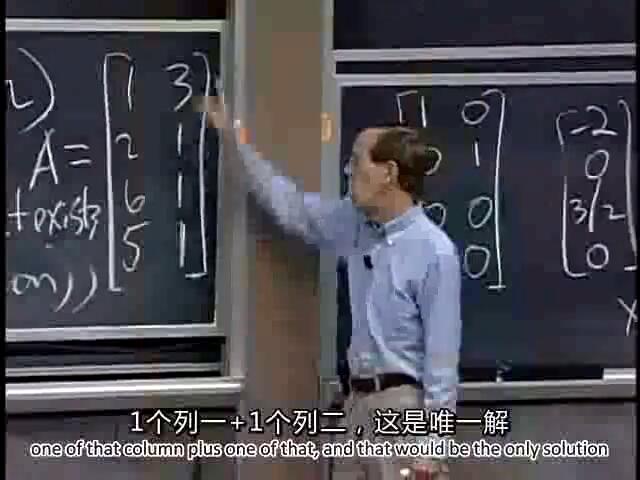 2)
A = [1 3
2 1
6 1
5 1]
t exists
m))
[1 0
0 1
0 0
0 0]
[-2
0
3/2
0]
x
1个列一+1个列二，这是唯一解
one of that column plus one of that, and that would be the only solution